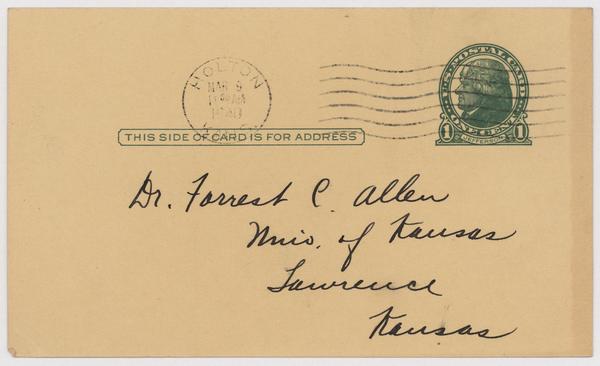 HOLTON
MAR 9
U.S. POSTAL CARD
1 ONE CENT 1
JEFFERSON
THIS SIDE OF CARD IS FOR ADDRESS
Dr. Forrest C. Allen
Univ. of Kansas
Lawrence
Kansas